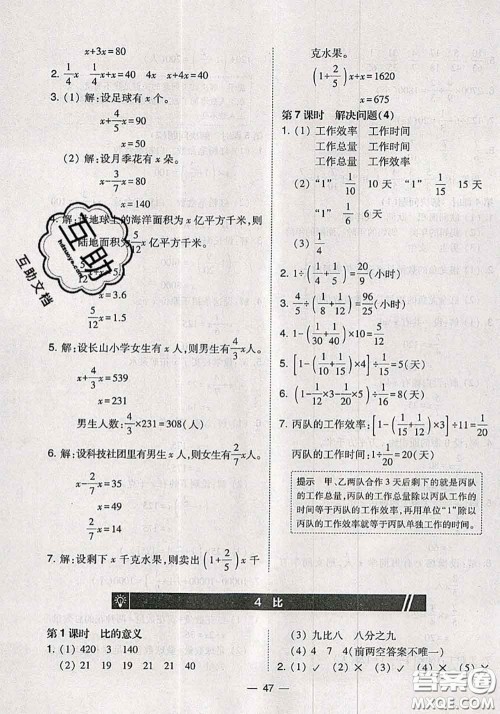 x+3x=80
2. 1/4x 1/4x+x=40 x+4x=40
3. (1) 解：设足球有 x 个。
x+4/5x=90
x=50
(2) 解：设月季花有 x 朵。
x-3/7x=80
x=140
4. 解：设地球上的海洋面积为 x 亿平方千米，则
陆地面积为 5/12x 亿
x=3.6
5/12x=1.5
5. 解：设长山小学女生有 x 人，则男生有 4/3x 人。
x+4/3x=539
x=231
男生人数：4/3×231=308（人）
6. 解：设科技社团里有男生 x 人，则女生有 2/7x 人。
x-2/7x=25
x=35
2/7x=10
7. 解：设剩下 x 千克水果，则卖出 (1+2/5)x 千
克水果。
(1+2/5)x+x=1620
x=675
第 7 课时 解决问题(4)
1. (1) 工作效率 工作时间
工作总量 工作时间
工作总量 工作效率
(2) “1” 1/10 10 天 “1” 1/15 15 天
“1” 1/6 6 天
(3) 1/4
2. 1÷(1/4+1/5)=20/9(小时)
3. 1÷(1/8+1/12)=96/25(小时)
4. 1-(1/30+1/40)×10=5/12
5. [1-(1/10+1/15)×4]÷1/15=5(天)
6. (1-1/12×3-1/20×5)÷1/20
7. 丙队的工作效率：[1-(1/10+1/12)×3]÷11=1/20
丙队的工作时间：1÷1/20=20(天)
提示 甲、乙两队合作 3 天后剩下的就是丙队
的工作总量，丙队的工作总量除以丙队工作的
时间等于丙队的工作效率，再用单位“1”除以
丙队的工作效率就等于丙队单独工作的时间。
4 比
第 1 课时 比的意义
1. (1) 420 3 140
(2) 21 19 19 21 21 40
(3) 九比八 八分之九
(4) 4 7 4 7(前两空答案不唯一)
2. (1) ✓ (2) ✓ (3) ✓ (4) ✕ (5) ✕
47
互助
互助文档
答案圈
MXQE.COM